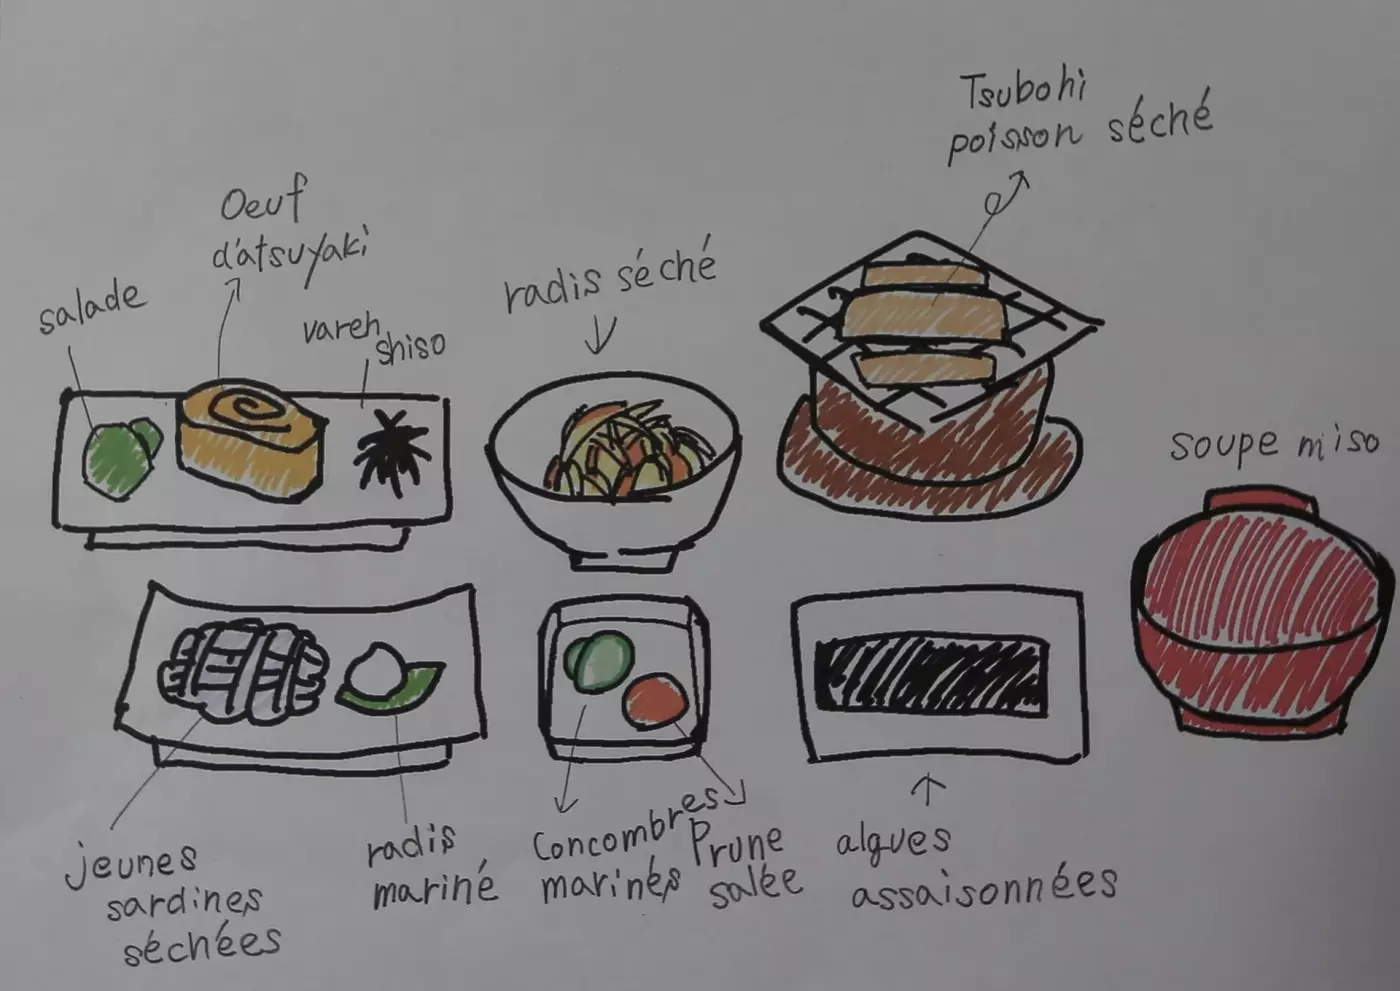 Tsubohi
poisson séché
Oeuf
d'atsuyaki
salade
vareh
shiso
radis séché
soupe miso
jeunes
sardines
séchées
radis
mariné
Concombres
marinés
Prune
salée
algues
assaisonnées